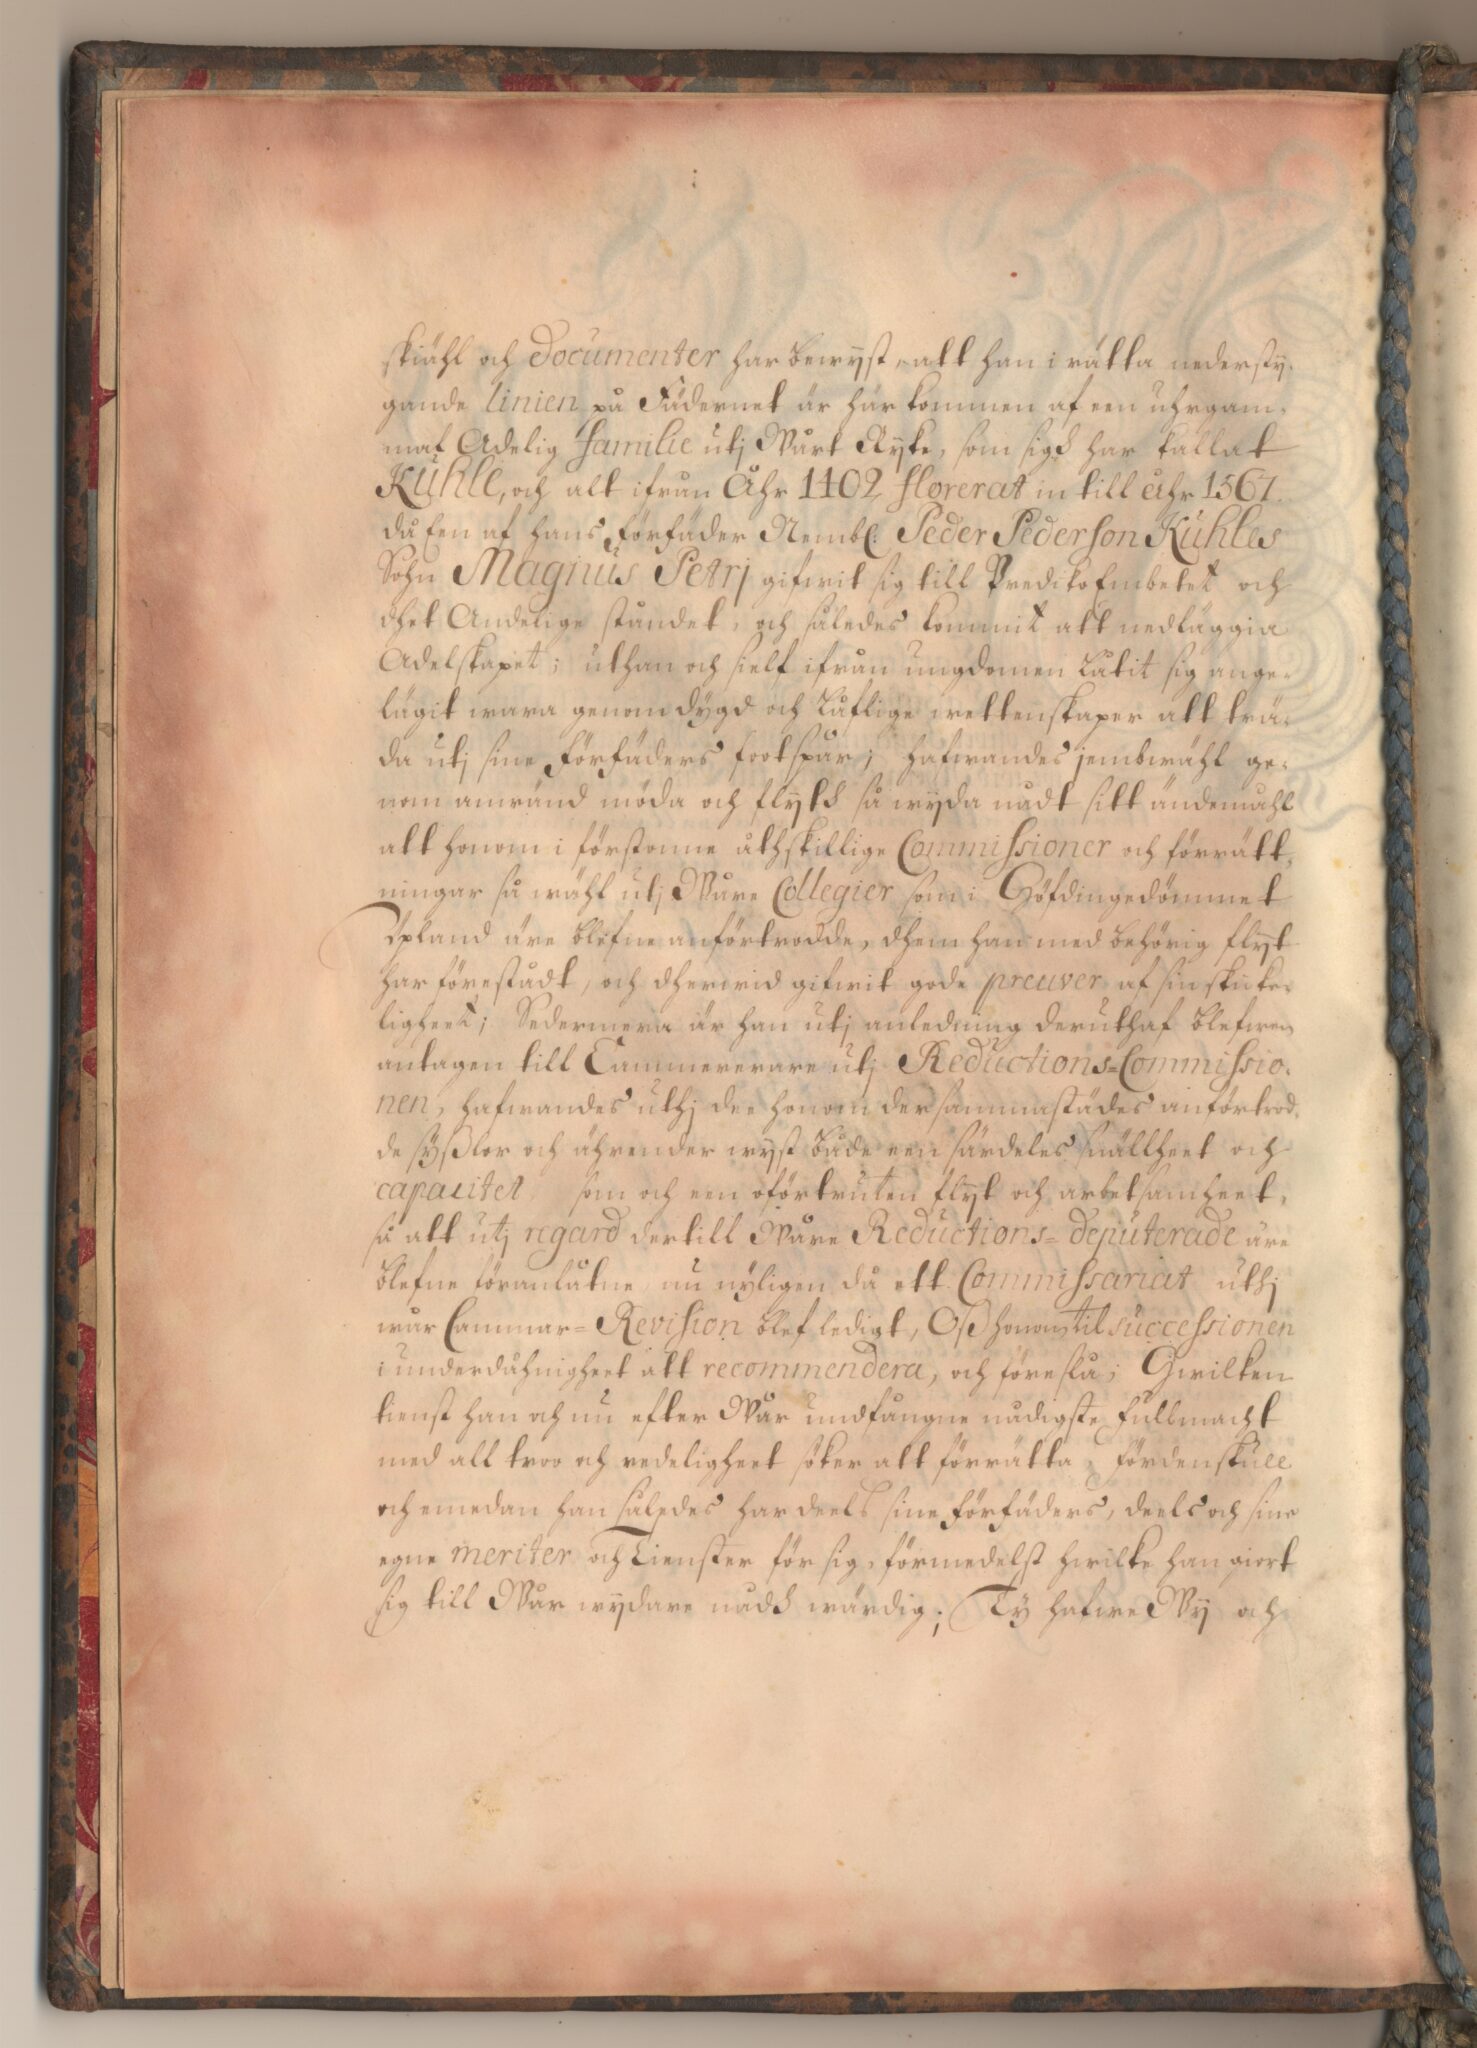 skiähl och documenter har bewijst, att han i rätta nedersty-
gande linien på Fädernet är här kommen af een uhrgam-
mal Adelig familie utj Wårt Ryke, som sigh har kallat
Kuhle, och alt ifrån Åhr 1402 florerat in till åhr 1567.
då Een af hans Förfäder Nembl: Peder Pederson Kuhles
Sohn Magnus Petrj gifwit sig till Predikoembetet och
dhet Andelige ståndet, och således kommit att nedläggia
Adelskapet; uthan och sielf ifrån ungdomen låtit sig ange-
lägit wara genom dygd och låflige wettenskaper att trä-
da utj sine Förfäders footspår; hafwandes jembwähl ge-
nom anwänd möda och flyth så wyda nådt sitt ändemåhl
att honom i förstonne åthskillige Commissioner och förrätt-
ningar så wähl utj Wåre Collegier som i Höfdingedömmet
Upland äre blefne anförtrodde, dhem han med behörig flyt
har förestådt, och dherwid gifwit gode preuver af sin skicke-
ligheet; Sedermera är han utj anledning deruthaf blefwen
antagen till Cammererare utj Reductions-Commissio-
nen, hafwandes uthj dee honom dersammastädes anförtrod-
de sysslor och ährender wyst både een särdeles snällheet och
capacitet som och een oförtruten flyt och arbetsamheet,
så att utj regard dertill Wåre Reductions-deputerade äre
blefne föranlåtne nu nyligen då ett Commissariat uthj
wår Cammar-Revision blef ledigt, Oss honom til successionen
i underdåhnigheet att recommendera, och föreslå; Hwilken
tienst han och nu efter Wår undfångne nådigste Fullmacht
med all troo och redeligheet söker att förrätta, fördenskull
och emedan han således har deels sine Förfäders, deels och sine
egne meriter och Tienster för sig, förmedelst hwilke han giort
sig till Wår wydare nådh wärdig; Ty hafwe Wy och